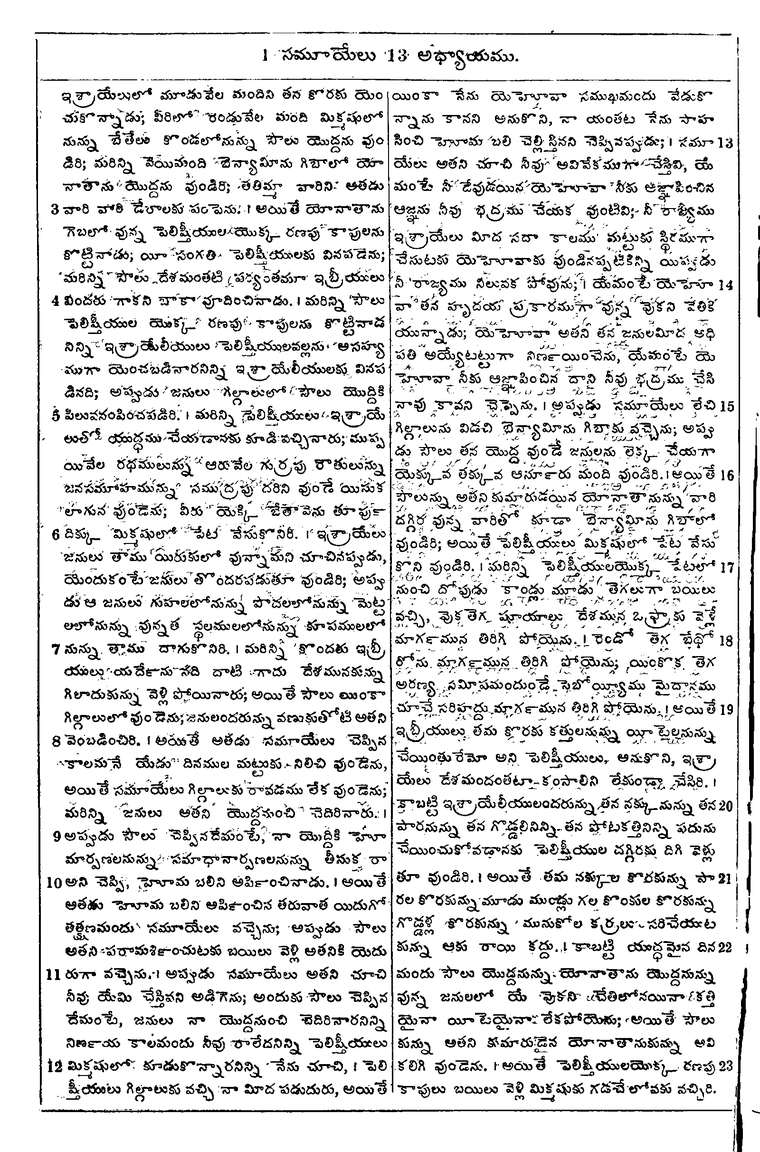 1 సమూయేలు 13 అధ్యాయము.
ఇశ్రాయేలులో మూడువేల మందిని తన కొరకు యెం
చుకొన్నాడు; వీరిలో రెండువేల మంది మిక్మషులో
నున్ను బేతేలు కొండలోనున్ను సౌలు యొద్దను వుం
డిరి; మరిన్ని వెయిమంది బెన్యామీను గిబాలో యో
నాతాను యొద్దను వుండిరి; తతిమ్మా వారిని అతడు
3 వారి వారి డేరాలకు పంపెను. । అయితే యోనాతాను
గెబలో వున్న పెలిష్తీయుల యొక్క రణపు కాపులను
కొట్టినాడు; యీ సంగతి పెలిష్తీయులకు వినపడెను;
మరిన్ని సౌలు దేశమంతటి పర్యంతమూ ఇబ్రీయులు
4 విందురు గాకని బాకా వూదించినాడు. । మరిన్ని సౌలు
పెలిష్తీయుల యొక్క రణపు కాపులను కొట్టినాడ
నిన్ని ఇశ్రాయేలీయులు పెలిష్తీయులవల్లను అసహ్య
ముగా యెంచబడినారనిన్ని ఇశ్రాయేలీయులకు వినప
డినది; అప్పుడు జనులు గిల్గాలులో సౌలు యొద్దికి
5 పిలువనంపించపడిరి. । మరిన్ని పెలిష్తీయులు ఇశ్రాయే
లులతో యుద్ధము చేయడానకు కూడి వచ్చినారు; ముప్ప
యివేల రథములున్ను ఆరువేల గుర్రపు రౌతులున్ను
జనసమూహమున్ను సముద్రపు దరిని వుండే యిసుక
లాగున వుండెను; వీరు యెక్కి బేతావెను తూర్పు
6 దిక్కు మిక్మషులో పేట వేసుకొనిరి. । ఇశ్రాయేలు
జనులు తాము యిరుకులో వున్నామని చూచినప్పుడు,
యెందుకంటే జనులు తొందరపడుతూ వుండిరి; అప్పు
డు ఆ జనులు గుహలలోనున్ను పొదలలోనున్ను మెట్ట
లలోనున్ను వున్నత స్థలములలోనున్ను కూపములలో
7 నున్ను తాము దాగుకొనిరి. । మరిన్ని కొందరు ఇబ్రీ
యులు యర్దేను నది దాటి గాదు దేశమునకున్ను
గిలాదుకున్ను వెళ్లి పోయినారు; అయితే సౌలు యింకా
గిల్గాలులో వుండెను; జనులందరున్ను వణుకుతోటి అతని
8 వెంబడించిరి. । అయితే అతడు సమూయేలు చెప్పిన
కాలమనే యేడు దినముల మట్టుకు నిలిచి వుండెను,
అయితే సమూయేలు గిల్గాలుకు రావడము లేక వుండెను;
మరిన్ని జనులు అతని యొద్దనుంచి చెదిరినారు. ।
9 అప్పుడు సౌలు చెప్పినదేమంటే, నా యొద్దికి హో
మార్పణలనున్ను సమాధానార్పణలనున్ను తీసుక్క రా
10 అని చెప్పి, హోమ బలిని అర్పించినాడు. । అయితే
అతడు హోమ బలిని అర్పించిన తరువాత యిదుగో
తత్క్షణమందు సమూయేలు వచ్చెను; అప్పుడు సౌలు
అతని పరామర్శించుటకు బయిలు వెళ్లి అతనికి యెదు
11 రుగా వచ్చెను. । అప్పుడు సమూయేలు అతని చూచి
నీవు యేమి చేస్తివని అడిగెను; అందుకు సౌలు చెప్పిన
దేమంటే, జనులు నా యొద్దనుంచి చెదిరినారనిన్ని
నిర్ణయ కాలమందు నీవు రాలేదనిన్ని పెలిష్తీయులు
12 మిక్మషులో కూడుకొన్నారనిన్ని నేను చూచి, । పెలి
ష్తీయులు గిల్గాలుకు వచ్చి నా మీద పడుదురు, అయితే
యింకా నేను యెహోవా సముఖమందు వేడుకొ
న్నాను కానని అనుకొని, నా యంతట నేను సాహ
సించి హోమ బలి చెల్లిస్తినని చెప్పినప్పుడు; । సమూ 13
యేలు అతని చూచి నీవు అవివేకముగా చేస్తివి, యే
మంటే నీ దేవుడయిన యెహోవా నీకు ఆజ్ఞాపించిన
ఆజ్ఞను నీవు భద్రము చేయక వుంటివి; నీ రాజ్యము
ఇశ్రాయేలు మీద సదా కాలము మట్టుకు స్థిరముగా
చేసుటకు యెహోవాకు వుండినప్పటికిన్ని యిప్పుడు
నీ రాజ్యము నిలువక పోవును; । యేమంటే యెహో 14
వా తన హృదయ ప్రకారముగా వున్న వొకని వెతికె
యున్నాడు; యెహోవా అతని తన జనులమీద అధి
పతి అయ్యేటట్టుగా నిర్ణయించెను, యేమంటే యె
హోవా నీకు ఆజ్ఞాపించిన దాని నీవు భద్రము చేసి
నావు కావని చెప్పెను. । అప్పుడు సమూయేలు లేచి 15
గిల్గాలును విడచి బెన్యామీను గిబాకు వచ్చెను; అప్పు
డు సౌలు తన యొద్ద వుండే జనులను లెక్క చేయగా
యెక్కువ తక్కువ ఆనూరు మంది వుండిరి. । అయితే 16
సౌలున్ను అతని కుమారుడయిన యోనాతానున్ను వారి
దగ్గిర వున్న వారితో కూడా బెన్యామీను గిబాలో
వుండిరి; అయితే పెలిష్తీయులు మిక్మషులో పేట వేసు
కొని వుండిరి. । మరిన్ని పెలిష్తీయులయొక్క పేటలో 17
నుంచి దోపుడు కాండ్లు మూడు తెగలుగా బయిలు
వచ్చి, వొక్క తెగ షూయాలు దేశమున ఒఫ్రాకు వెళ్లే
మార్గమున తిరిగి పోయెను. । రెండో తెగ బేథో 18
రోను మార్గమున తిరిగి పోయెను; యింకొక తెగ
అరణ్య సమీపమందుండే సెబోయ్యీము మైదానము
చూచే సరిహద్దు మార్గమున తిరిగి పోయెను. । అయితే 19
ఇబ్రీయులు తమ కొరకు కత్తులనున్ను యీటెల్లనున్ను
చేయింతురేమో అని పెలిష్తీయులు అనుకొని, ఇశ్రా
యేలు దేశమందంతటా కంసాలిని లేకుండా చేసిరి. ।
కాబట్టి ఇశ్రాయేలీయులందరున్ను తన నక్కునున్ను తన 20
పారనున్ను తన గొడ్డలినిన్ని తన పోటకత్తినిన్ని పదును
చేయించుకోవడానకు పెలిష్తీయుల దగ్గిరకు దిగి వెళ్లు
తూ వుండిరి. । అయితే తమ నక్కుల కొరకున్ను పా 21
రల కొరకున్ను మూడు ముండ్లు గల కొంకుల కొరకున్ను
గొడ్డళ్ల కొరకున్ను మునుకోల కర్రలు సరిచేయుట
కున్ను ఆకు రాయి కద్దు. । కాబట్టి యుద్ధమైన దిన 22
మందు సౌలు యొద్దనున్ను యోనాతాను యొద్దనున్ను
వున్న జనులలో యే వొకని చేతిలోనయినా కత్తి
యైనా యీటెయైనా లేకపోయెను; అయితే సౌలు
కున్ను అతని కుమారుడైన యోనాతానుకున్ను అవి
కలిగి వుండెను. । అయితే పెలిష్తీయులయొక్క రణపు 23
కాపులు బయిలు వెళ్లి మిక్మషుకు గడచే లోవకు వచ్చిరి.